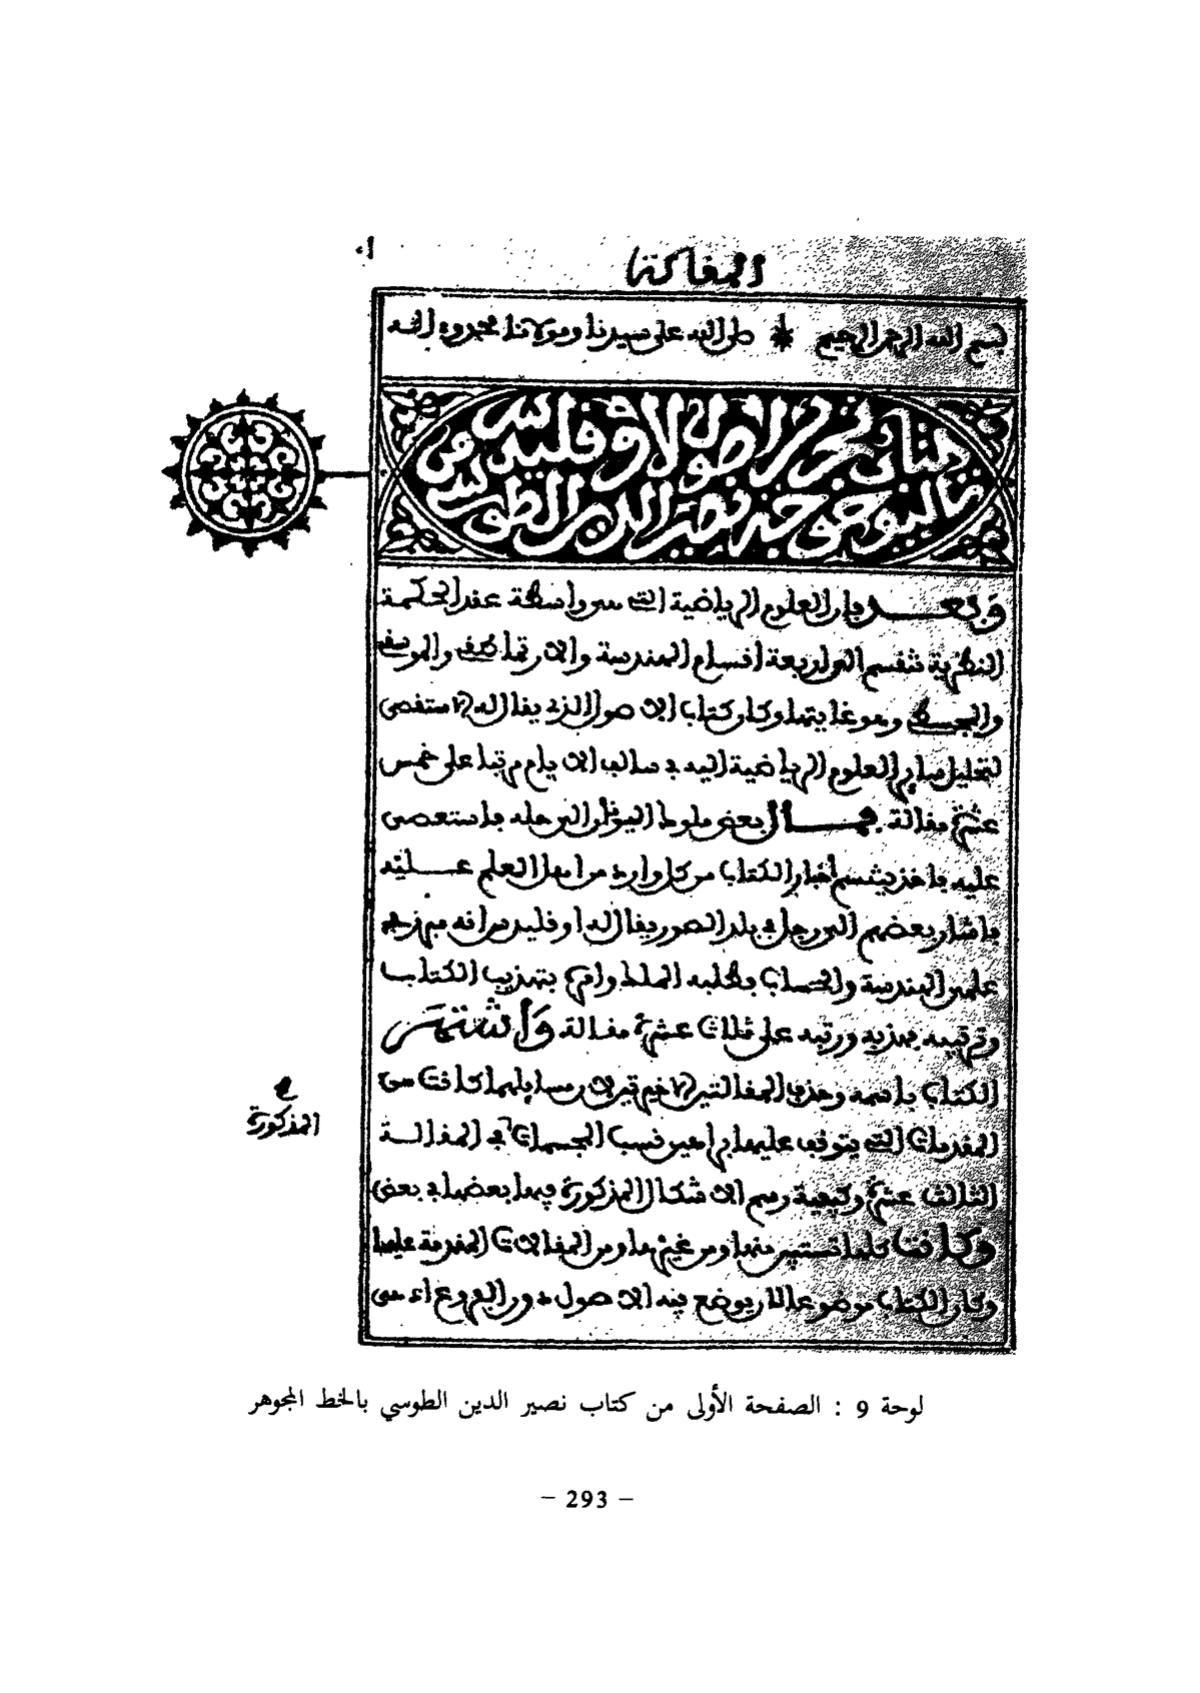 المقالة
بسم الله الرحمن الرحيم * صلى الله على سيدنا ومولانا محمد وءاله
كتاب تحرير اصول لاوقليدس
تاليف خوجه نصير الدين الطوسي
وبعد فان العلوم الرياضية التي هي واسطة عقد الحكمة
النظرية تنقسم الى اربعة اقسام الهندسة والارتماطيقى والموسيقى
والمجسطي وهو غايتها وكان كتاب الاصول الذي يقال له الاستقصى
لتحليل مباني العلوم الرياضية اليه في سالف الايام مرتبا على خمس
عشرة مقالة فمال بعض ملوك اليونان الى حله فاستعصى
عليه فاخذ يتنسم اخبار الكتاب من كل وارد من اهل العلم عليه
فاشار بعضهم الى رجل في بلد الصور يقال له اوقليدس انه مبرز في
علمي الهندسة والحساب فطلبه الملك وامره بتهذيب الكتاب
وترتيبه فهذبه ورتبه على ثلاث عشرة مقالة واشتهر
الكتاب باسمه وحذف المقالتين الاخيرتين لان مسايلهما كانت من
المقدمات التي يتوقف عليها براهين نسب المجسمات في المقالة
الثالثة عشرة وكيفية رسم الاشكال المذكورة فيها بعضها في بعض
وكانت كلها تستبين منها ومن غيرها ومن المقالات المقدمة عليها
وكان الكتاب موضوعا لان يوضع فيه الاصول دون الفروع اذ هي
في
المذكورة
لوحة 9 : الصفحة الأولى من كتاب نصير الدين الطوسي بالخط المجوهر
– 293 –